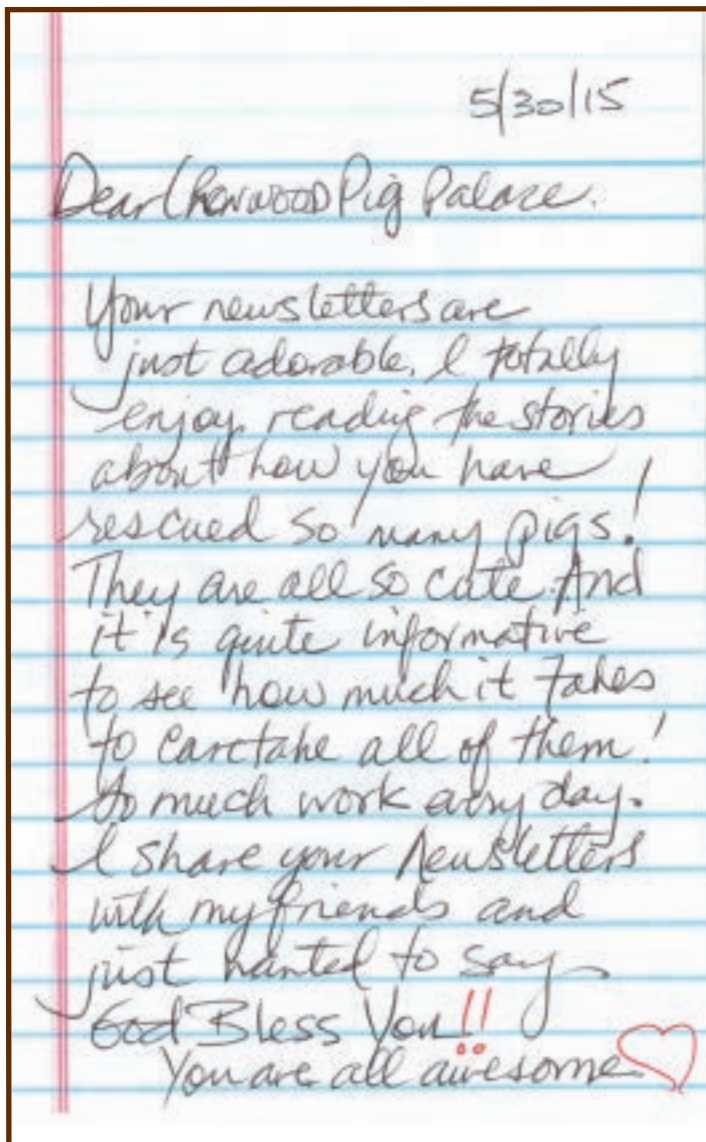 5/30/15
Dear Ironwood Pig Palace.
Your newsletters are
just adorable. I totally
enjoy reading the stories
about how you have
rescued so many pigs!
They are all so cute. And
it is quite informative
to see how much it takes
to caretake all of them!
So much work every day.
I share your Newsletters
with my friends and
just wanted to say
God Bless You!!
You are all awesome